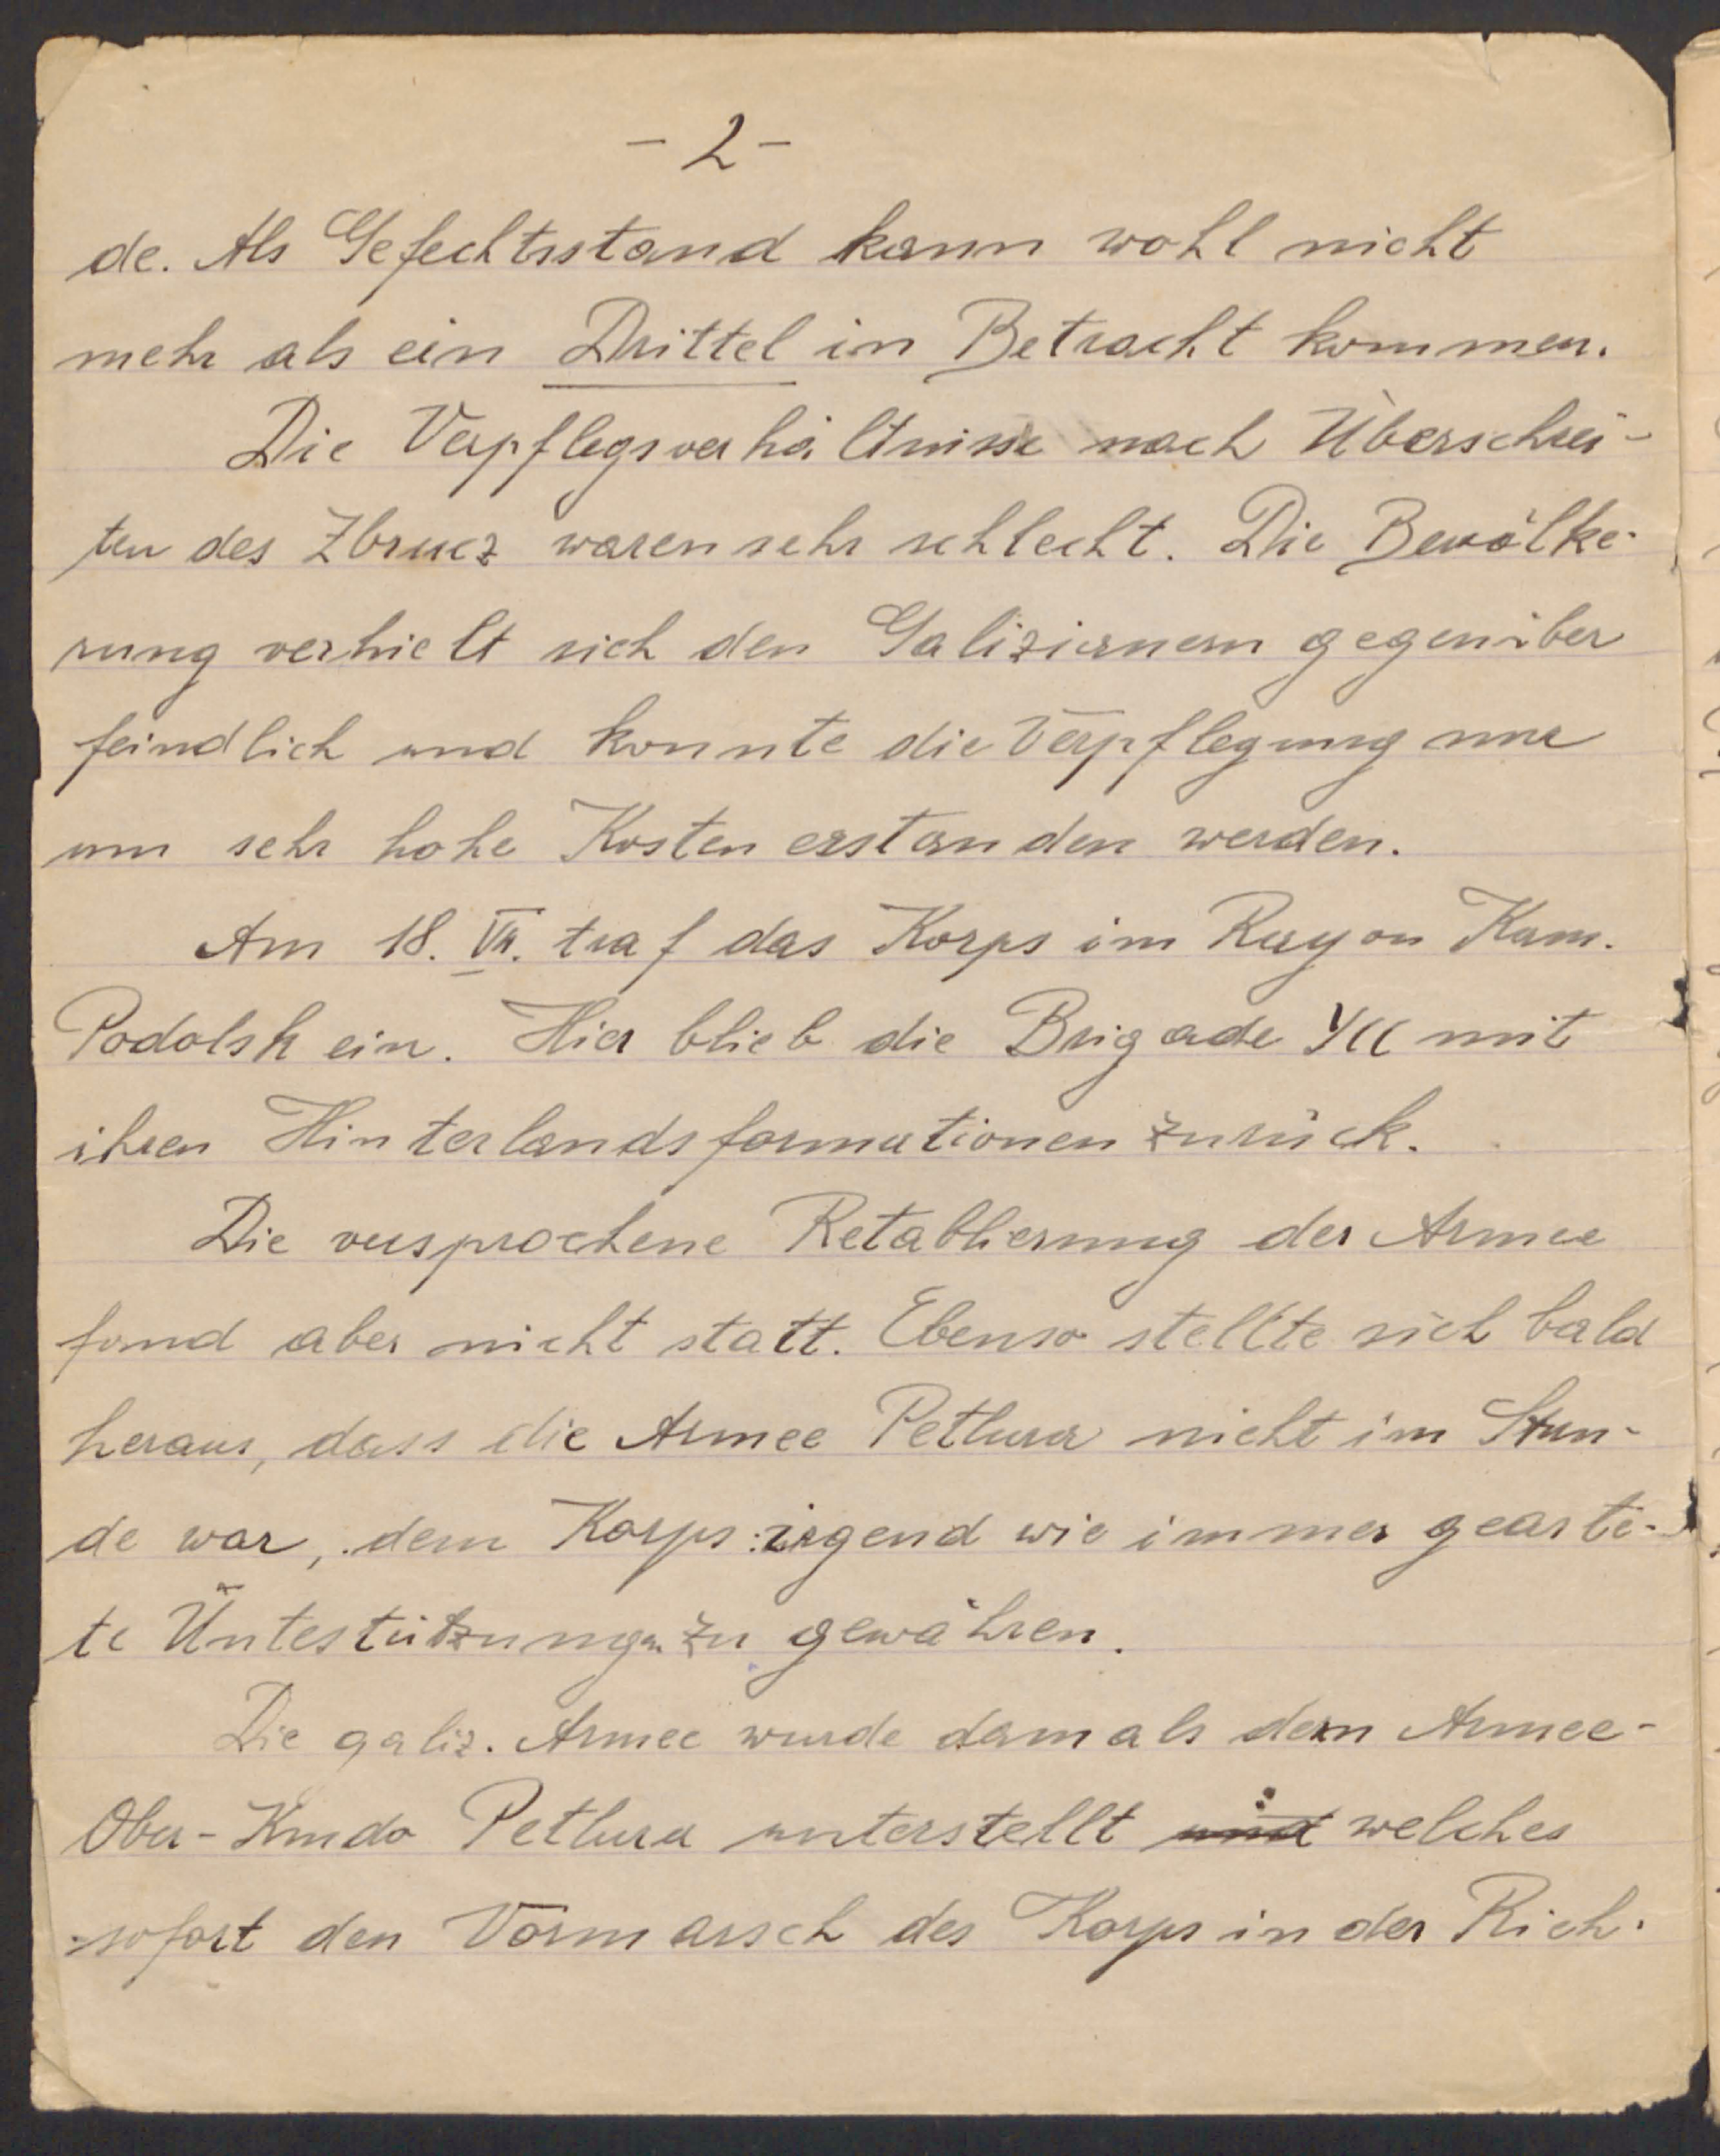 - 2 -
de. Als Gefechtsstand kann wohl nicht
mehr als ein Drittel in Betracht kommen.
Die Verpflegsverhältnisse nach Überschrei-
ten des Zbrucz waren sehr schlecht. Die Bevölke-
rung verhielt sich den Galizianern gegenüber
feindlich und konnte die Verpflegung nur
um sehr hohe Kosten erstanden werden.
Am 18. VII. traf das Korps im Rayon Kam.
Podolsk ein. Hier blieb die Brigade mit
ihren Hinterlandsformationen zurück.
Die versprochene Retablierung der Armee
fand aber nicht statt. Ebenso stellte sich bald
heraus, dass die Armee Petlura nicht im Stan-
de war, dem Korps irgend wie immer gearte-
te Untestützung zu gewähren.
Die galiz. Armee wurde damals dem Armee-
Ober-Kmdo Petlura unterstellt und welches
sofort den Vormarsch des Korps in der Rich-